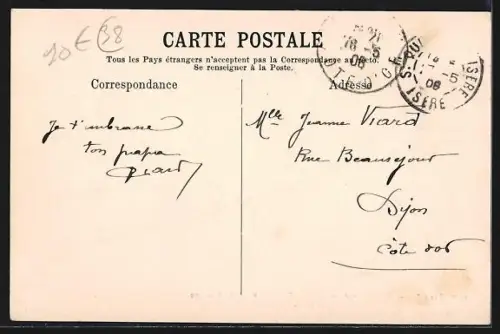 10 € 38
CARTE POSTALE
Tous les Pays étrangers n'acceptent pas la Correspondance au recto.
Se renseigner à la Poste.
Correspondance
Adresse
Je t'embrasse
ton papa
Viard
Mlle Jeanne Viard
Rue Beauséjour
Dijon
Côte d'or
CÔTE-D'OR
08
ISÈRE
ISÈRE
08